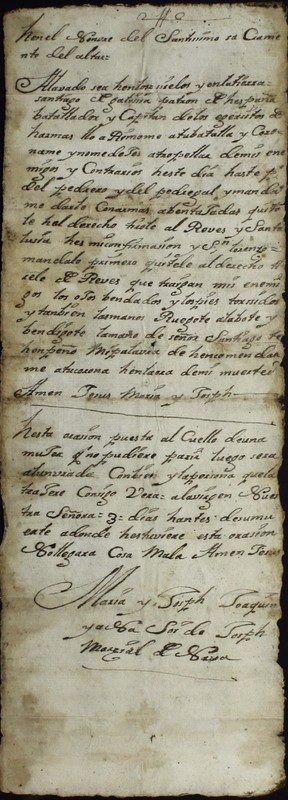 henel Nonvre del Santisimo sa Crame
nto del altar=
Alavado sea henlos sielos y enlatierra=
santiago de galisia patron de hespaña
batallador y Capitan delos egersitos de
harmas llo a Rimome atubatalla y Coro
name y nome dejes atropellar demis ene
migos y Contrarios heste dia haste
del pedrero y del pedregal y mandas
me darte Con armas abentajadas quito
te hel derecho histe al Reves y Santa
lusia hes mi confirmasion y
mandfato primero quitele al derecho
selo de Reves que traigan mis enemi
gos los ojos bendados y los pies transidos
y tanbien las manos Ruegote alabote y
bendigote tamaño de señor Santiago te
henpeño Mipalavra de hencomendar
me atucorona henlaora demi muerte
Amen Jesus Maria y Joseph
hesta orasion puesta al Cuello deuna
muJer q no pudiere parir luego sera
alunvrada Conbien y la persona quela
traJere Consigo Vera= ala virgen Nues
tra Señora= 3= dias hantes desumu
erte adonde hestuviere esta orasion
Nollegara Cosa Mala Amen Jesus
Maria y Joseph Joaquin
y aNa Soi de Joseph
Marsial de Nava